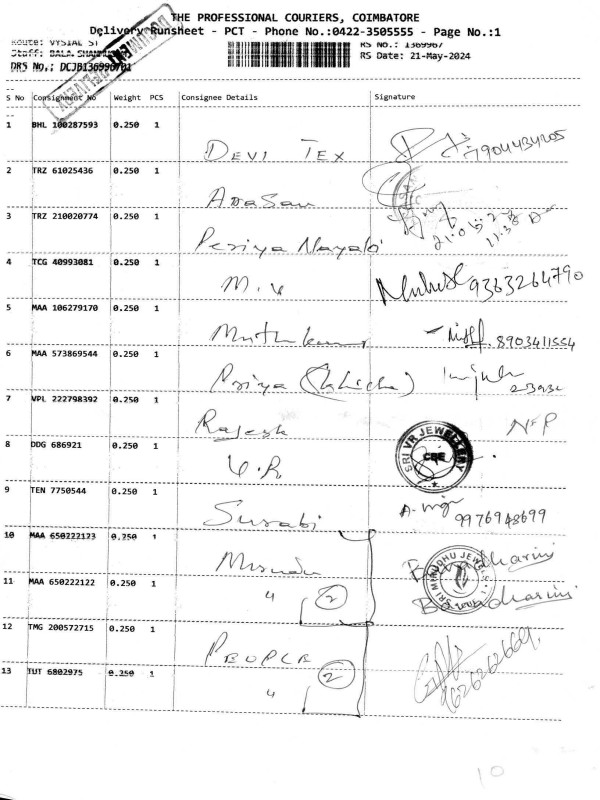 THE PROFESSIONAL COURIERS, COIMBATORE
Delivery Runsheet - PCT - Phone No.:0422-3505555 - Page No.:1
Route: VYSIAL ST RS No.: 1369967
Staff: BALA RS Date: 21-May-2024
DRS No.:
S No Consignment No Weight PCS Consignee Details Signature
1 BHL 100287593 0.250 1 DEVI TEX 7904434205
2 TRZ 61025436 0.250 1
3 TRZ 210020774 0.250 1 Periya Nayaki
4 TCG 40993081 0.250 1 M.V 9363264790
5 MAA 106279170 0.250 1 Muthukumar 8903411554
6 MAA 573869544 0.250 1 Priya
7 VPL 222798392 0.250 1 Rajesh
8 DDG 686921 0.250 1 V.R SRI VR JEWELLERY CBE
9 TEN 7750544 0.250 1 Surabi 9976948699
10 MAA 650222123 0.250 1 SRI MIRUDHU JEWEL
11 MAA 650222122 0.250 1 " 2
12 TMG 200572715 0.250 1 PEOPLE
13 TUT 6802975 0.250 1 " 2
10